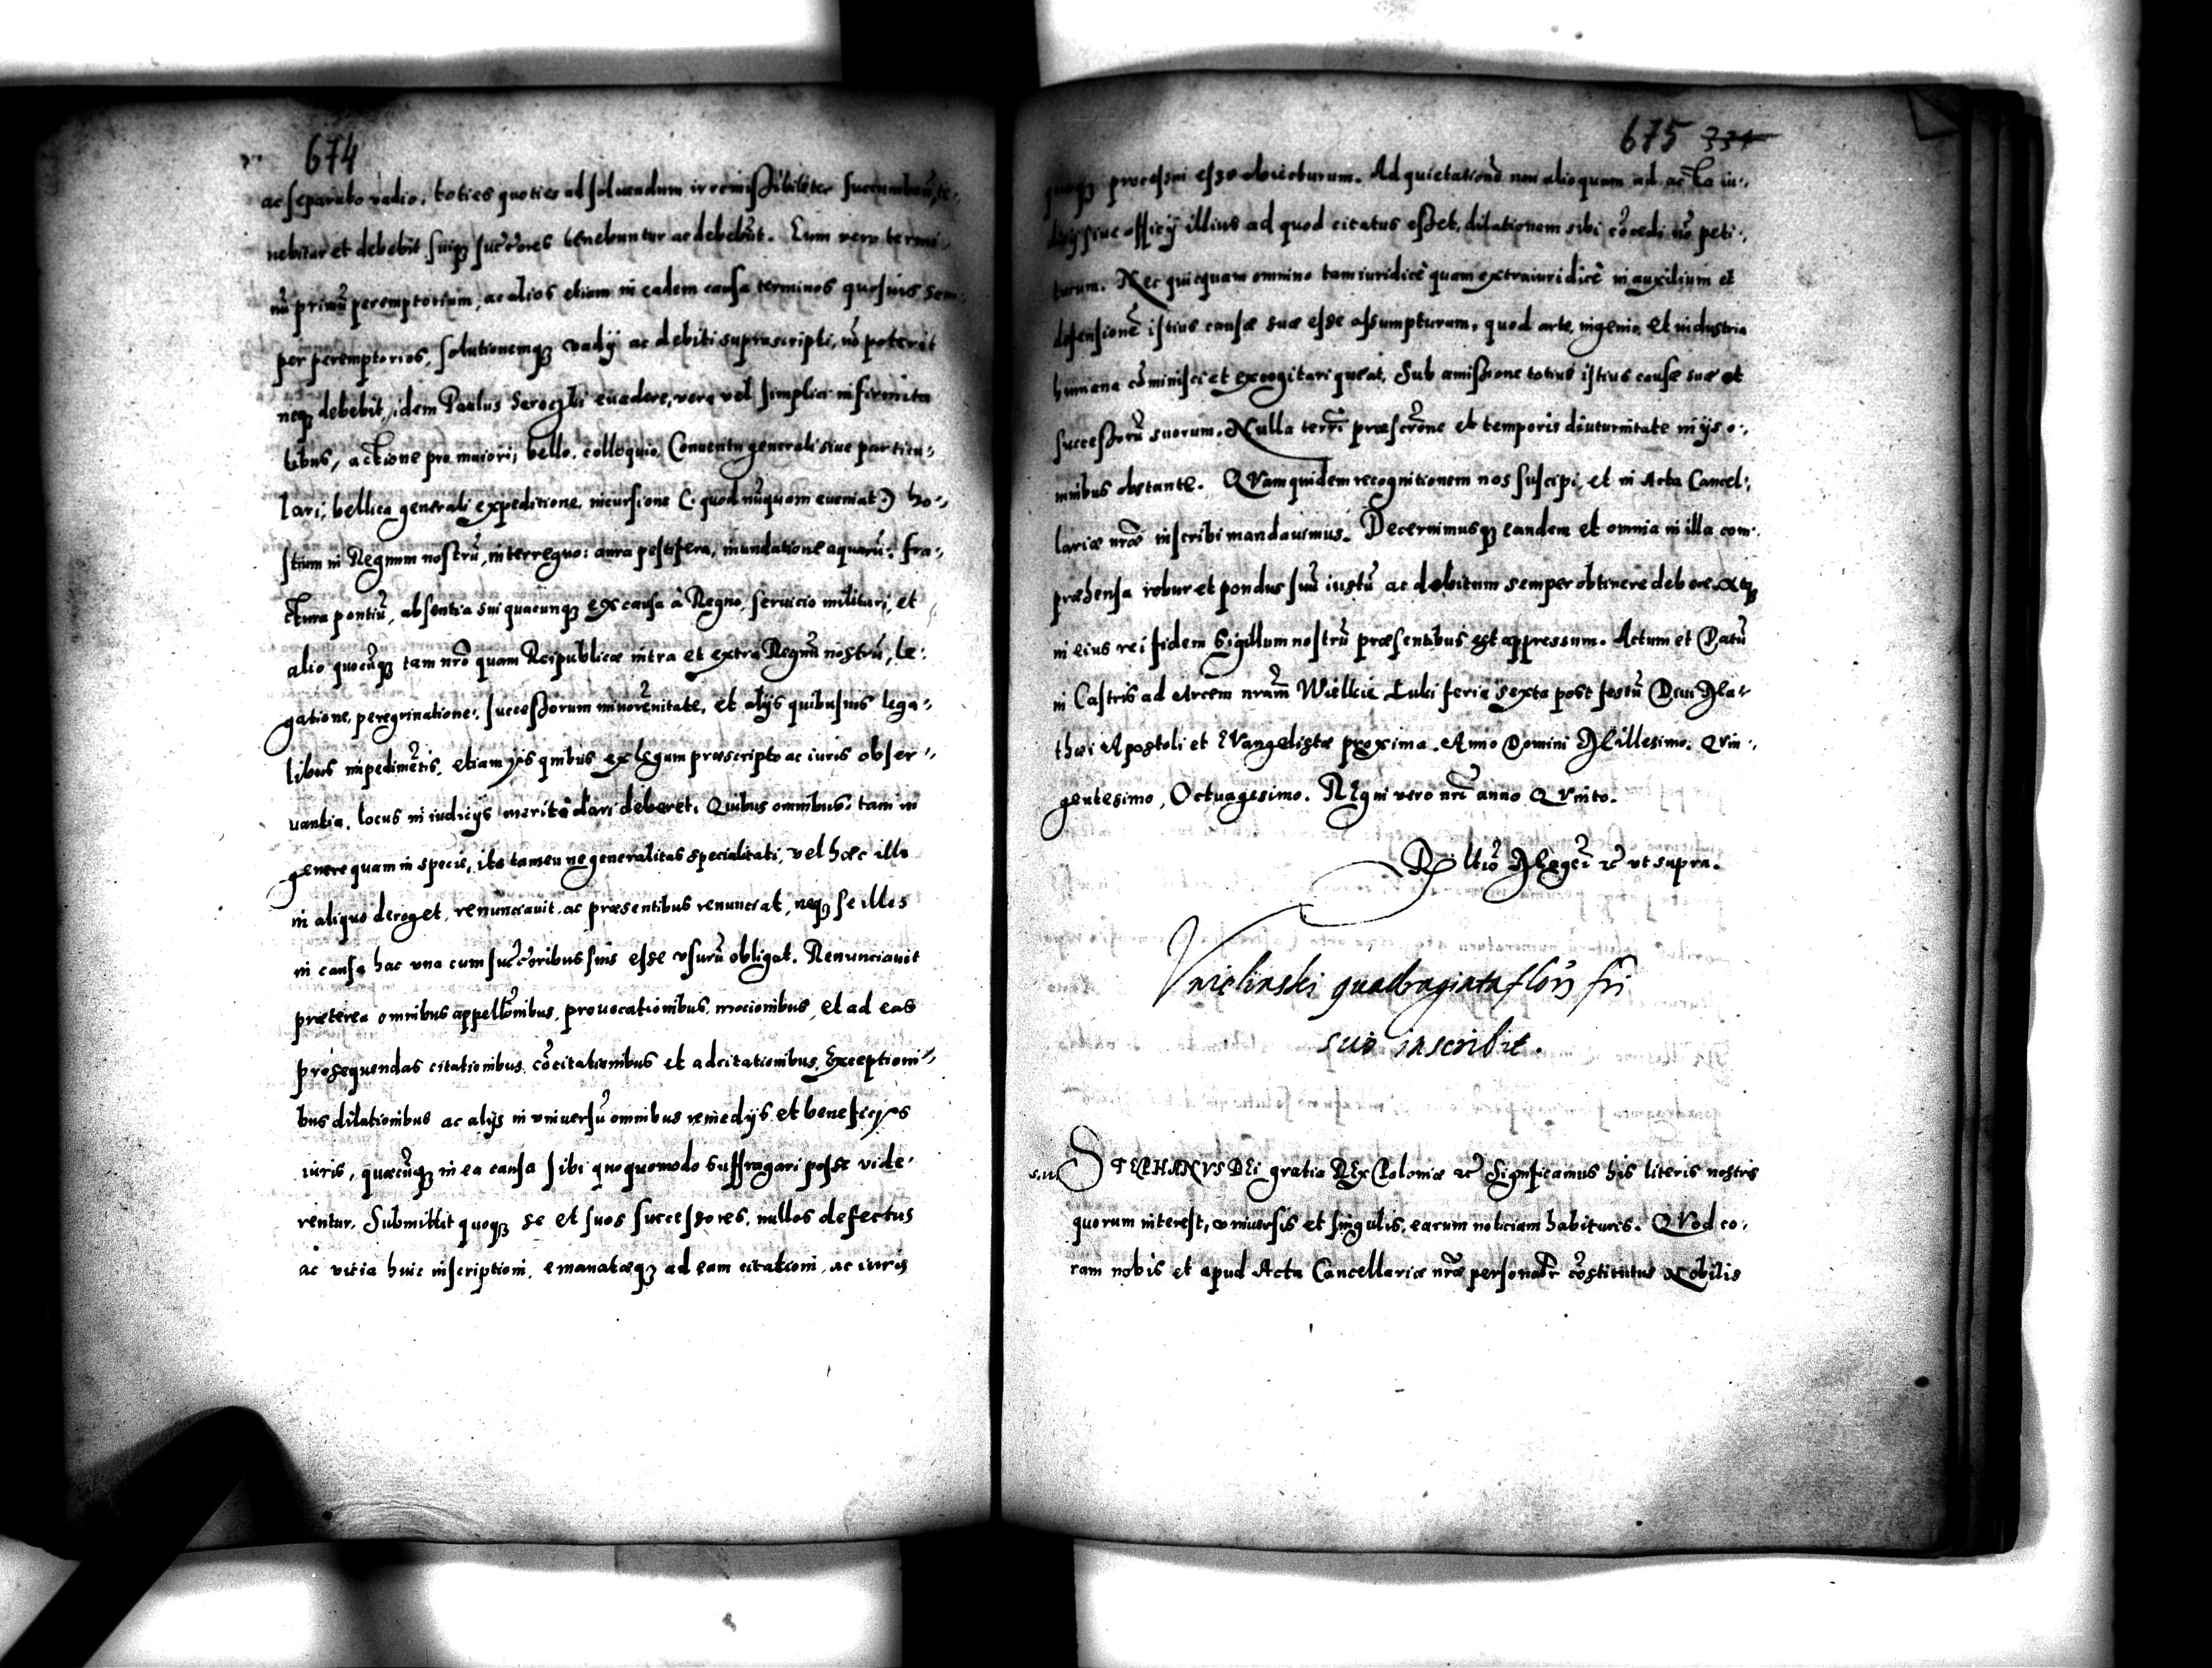 674
ac separato vadio, toties quoties ad soluendum irremissibiliter succumben, te-
nebitur et debebit suiqꝫ succ̃ores tenebuntur ac debebũt. Cum vero termi-
nũ primũ peremptorium, ac alios etiam in eadem causa terminos quosuis sem-
per peremptorios, solutionemqꝫ vadÿ ac debiti suprascripti, nõ poterit
neqꝫ debebit, idem Paulus Seroczki euadere, vera vel simplici infirmita
tibus, actione pro maiori, bello, colloquio, Conuentu generali siue particu-
lari, bellica generali expeditione, incursione (: quod nũquam eueniat:) ho-
stium in Regnum nostrũ, interregno: aura pestifera, inundatione aquarũ: fra-
ctura pontiũ, absentia sui quacunqꝫ ex causa à Regno, seruicio militari, et
alio quocũqꝫ tam nr̃o quam Reipublicæ intra et extra Regnũ nostrũ, le-
gatione, peregrinatione, successorum minorẽnitate, et alÿs quibusuis lega-
libus impedimẽtis, etiam ÿs quibus ex legum præscripto ac iuris obser-
uantia, locus in iudicÿs meritò dari deberet. Quibus omnibus, tam in
genere quam in specie, ita tamen ne generalitas specialitati, vel hæc illi
in aliquo deroget, renunciauit, ac præsentibus renunciat, neqꝫ se illis
in causa hac vna cum succ̃oribus suis esse vsurũ obligat. Renunciauit
præterea omnibus appellõnibus, prouocationibus, mocionibus, et ad eas
prosequendas citationibus, cõcitationibus et adcitationibus, Exceptioni-
bus dilationibus ac alÿs in vniuersũ omnibus remedÿs et beneficÿs
iuris, quæcũqꝫ in ea causa sibi quoquomodo suffragari posse vide-
rentur. Submittit quoqꝫ se et suos successores, nullos defectus
ac vitia huic inscriptioni, emanatæqꝫ ad eam citationi, ac iuris
675 331
quoqꝫ processui esse obiecturum. Ad quietationẽ non alio quam ad acta iu-
dicÿ siue officÿ illius ad quod citatus esset, dilationem sibi cõcedi nõ peti-
turum. Nec quicquam omnino tam iuridicè quam extraiuridicè in auxilium et
defensionẽ istius causæ suæ esse assumpturum, quod arte, ingenio, et industria
humana cõminisci et excogitari queat, Sub amissione totius istius causæ suæ et
successorũ suorum. Nulla terr̃i præscrõne et temporis diuturnitate in ÿs o-
mnibus obstante. QVam quidem recognitionem nos suscipi, et in Acta Cancel-
lariæ nr̃æ inscribi mandauimus. Decernimusqꝫ eandem et omnia in illa com-
præhensa robur et pondus suũ iustũ ac debitum semper obtinere debere. Atqꝫ
in eius rei fidem Sigillum nostrũ præsentibus est appressum. Actum et Datũ
in Castris ad Arcem nram̃ Wielkie Luki feria sexta post festũ Diui Mat-
thæi Apostoli et EVangelistæ proxima. Anno Domini Millesimo. QVin-
gentesimo, Octuagesimo. REgni vero nr̃i anno QVinto.
Rel̃tio Mag̃ci ꝛc̃ vt supra.
quadraginta flor̃
suo inscribit.
STEPHANVS DEi gratia REx Poloniæ ꝛc̃ Significamus his literis nostris
quorum interest, vniuersis et singulis, earum noticiam habituris. QVod co-
ram nobis et apud Acta Cancellariæ nr̃æ personalr̃ cõstitutus Nobilis